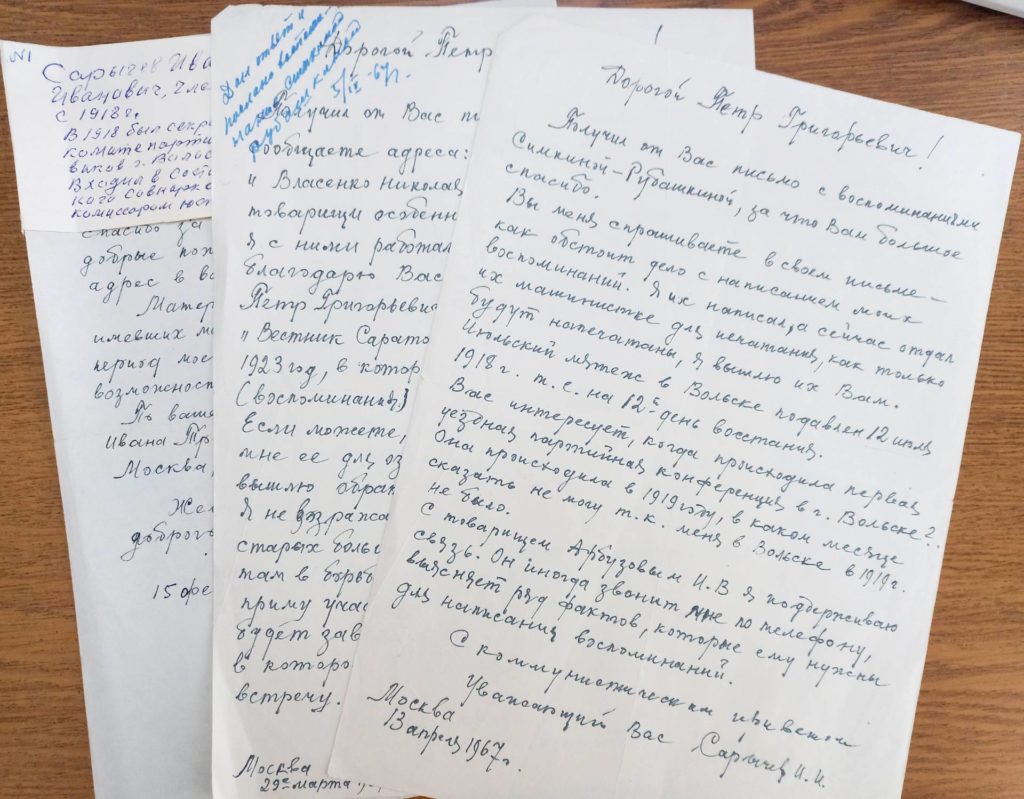 №1
Сарычев Ива
Иванович, чле
с 1918 г.
В 1918 был секре
комитета парти
виков г. Вольс
Входил в соста
кого совнарко
комиссаром юст
спасибо за
добрые пож
адрес в во
Матер
имевших м
период мос
возможност
По ваше
Ивана Тр
Москва,
Жел
доброго
15 фе
Дал ответ и
5/IV-67 г.
Дорогой Петр
Получил от Вас пи
сообщаете адреса:
" Власенко Николая
товарищи особенн
я с ними работал
благодарю Вас
Петр Григорьеви
" Вестник Сарато
1923 год, в котор
(воспоминания)
Если можете,
мне ее для оз
вышлю обрат
Я не возража
старых больш
там в борьбе
приму учас
будет зав
в которо
встречу.
Москва
29е марта
Дорогой Петр Григорьевич!
Получил от Вас письмо с воспоминаниями
Симкиной-Рубашкиной, за что Вам большое
спасибо.
Вы меня спрашиваете в своем письме –
как обстоит дело с написанием моих
воспоминаний. Я их написал, а сейчас отдал
их машинистке для печатания, как только
будут напечатаны, я вышлю их Вам.
Июльский мятеж в Вольске подавлен 12 июля
1918 г. т.е. на 12й день восстания.
Вас интересует, когда происходила первая
уездная партийная конференция в г. Вольске?
Она происходила в 1919 году, в каком месяце
сказать не могу т.к. меня в Вольске в 1919 г.
не было.
С товарищем Арбузовым И.В я поддерживаю
связь. Он иногда звонит мне по телефону,
выясняет ряд фактов, которые ему нужны
для написания воспоминаний.
С коммунистическим приветом
Уважающий Вас Сарычев И.И.
Москва
13 апреля 1967 г.